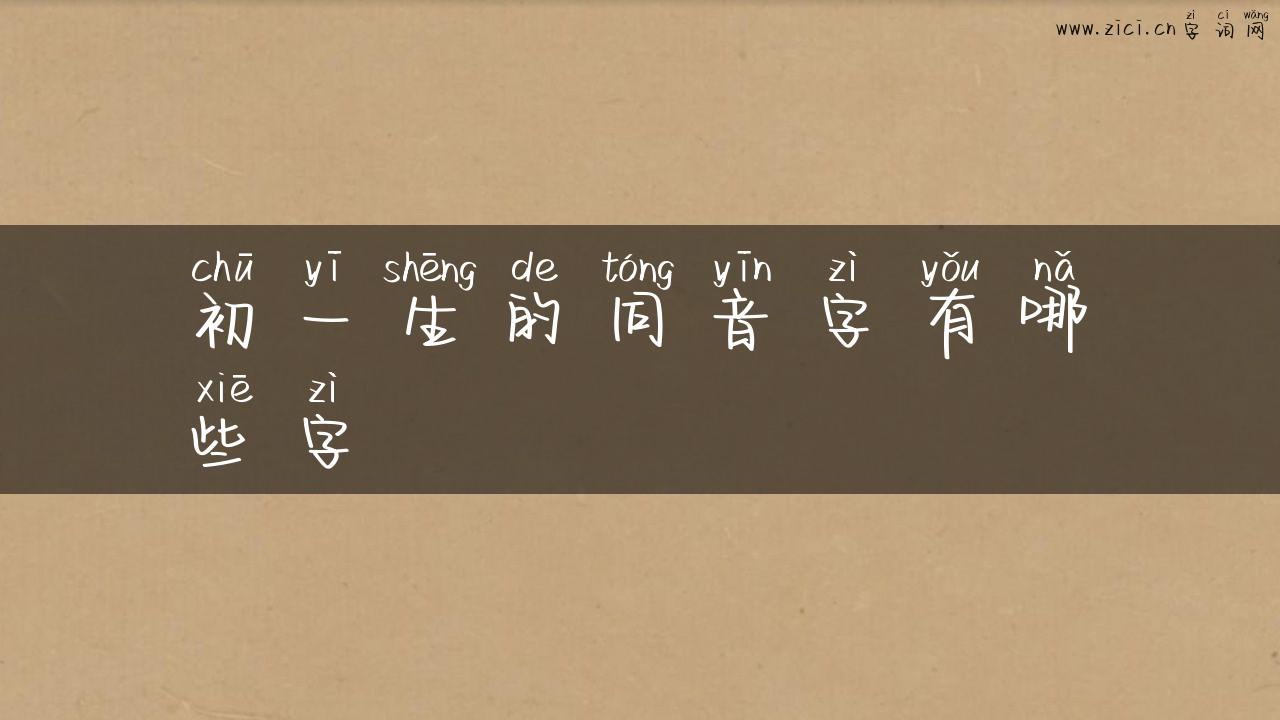 zì cí wǎng
www.zici.cn 字 词 网
chū yī shēng de tóng yīn zì yǒu nǎ
初 一 生 的 同 音 字 有 哪
xiē zì
些 字